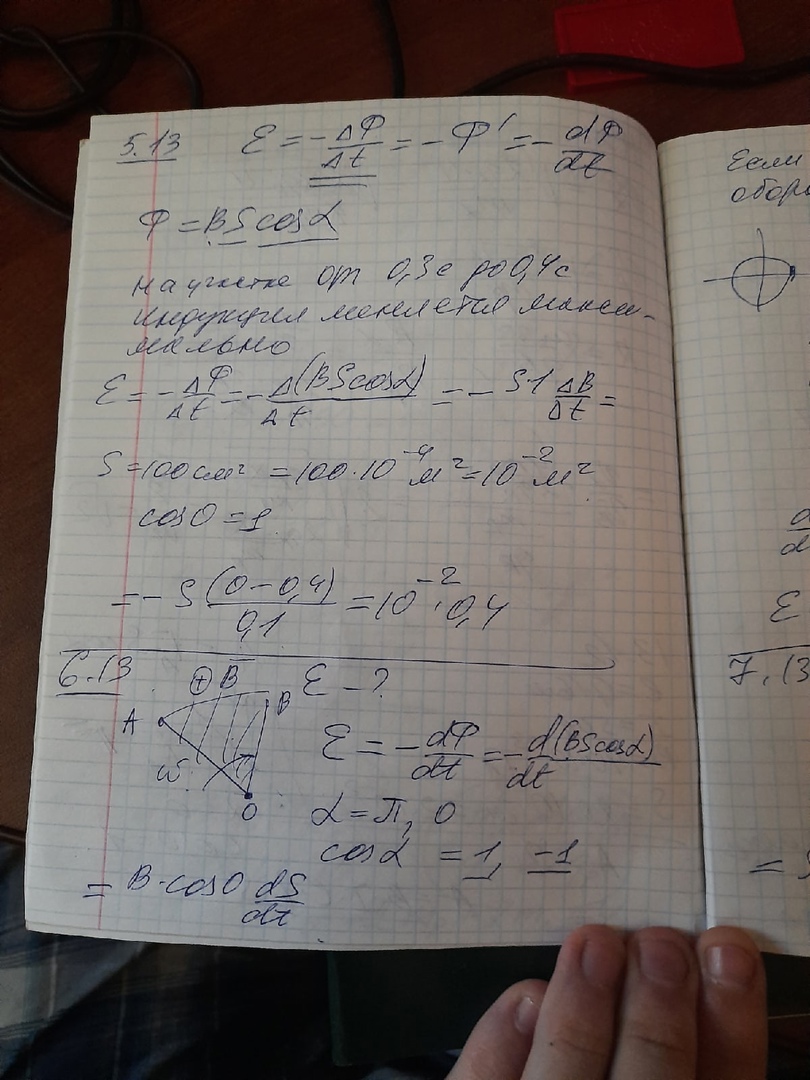 5.13 ℰ = -ΔΦ/Δt = -Φ' = -dΦ/dt
Φ = BS cosα
на участке от 0,3с до 0,4с
индукция меняется макси-
мально
ℰ = -ΔΦ/Δt = -Δ(BS cosα)/Δt = -S·1 ΔB/Δt =
S = 100 см² = 100·10⁻⁴ м² = 10⁻² м²
cos0 = 1
= -S (0-0,4)/0,1 = 10⁻²·0,4
6.13 ⊕ B ℰ -?
A B
ω O
ℰ = -dΦ/dt = -d(BS cosα)/dt
α = π, 0
cosα = 1, -1
= B·cos0 dS/dt
Если
обор
d
d
ℰ
7.13
=